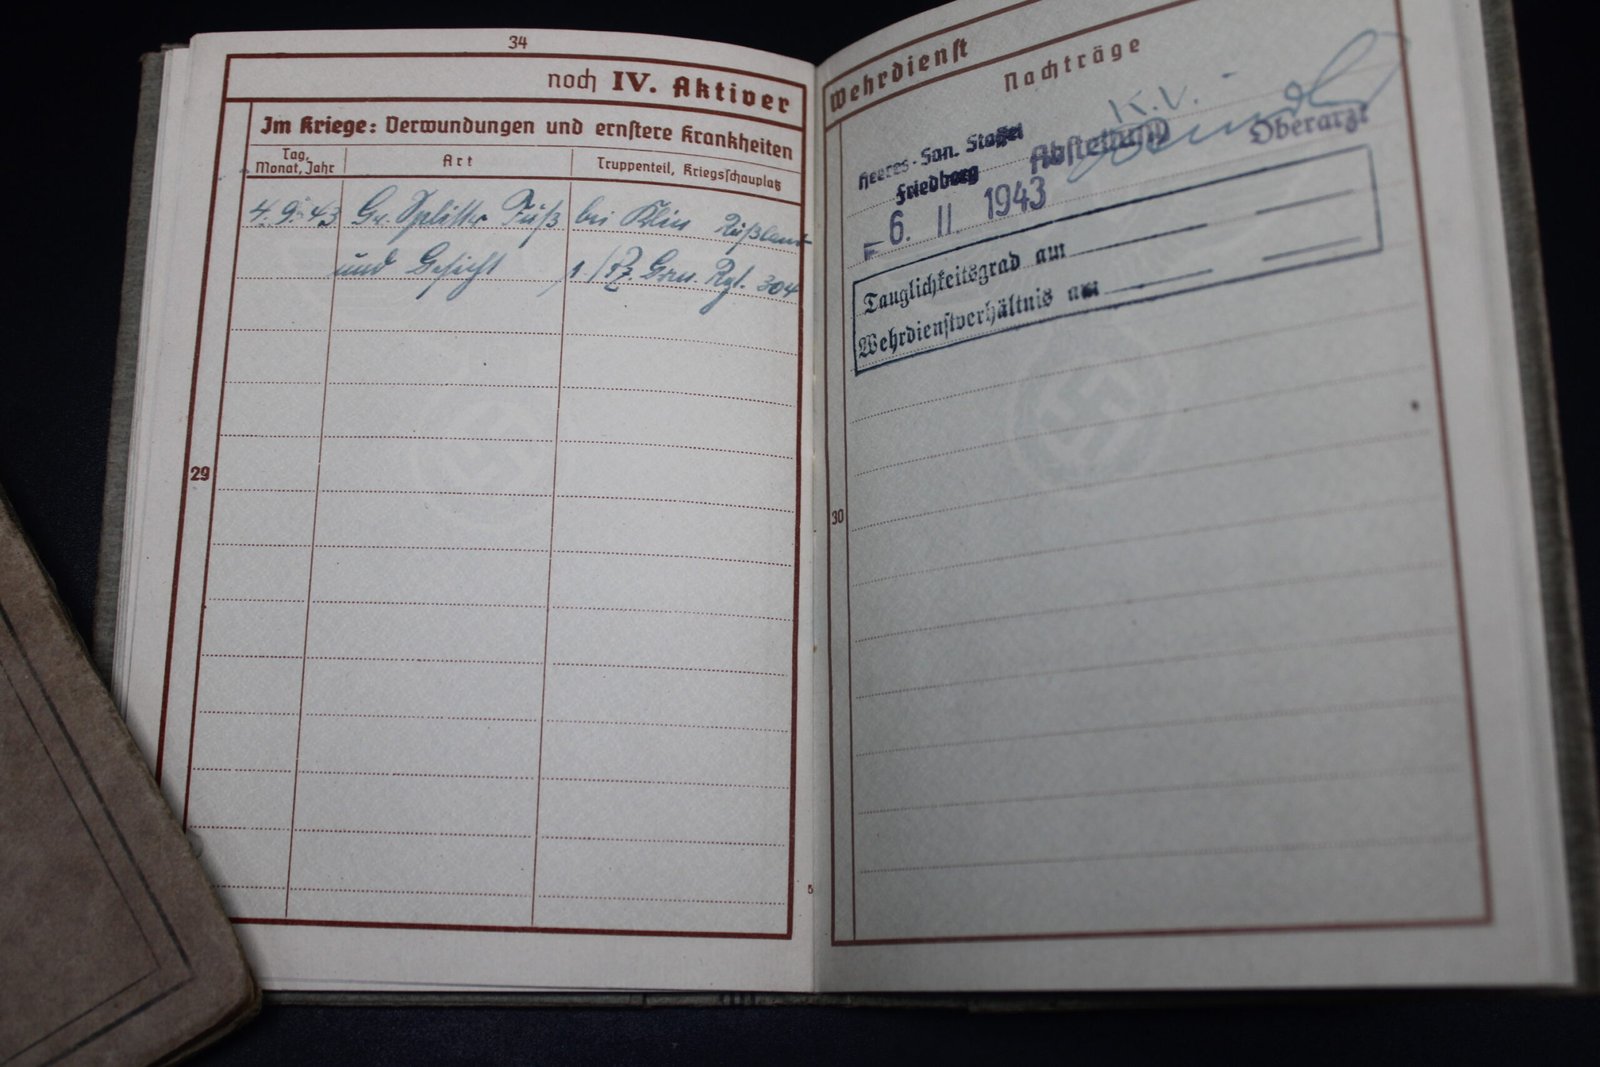 34
noch IV. Aktiver
Im Kriege: Verwundungen und ernstere Krankheiten
Tag, Monat, Jahr
Art
Truppenteil, Kriegsschauplatz
4. 9. 43 Gr. Splitter Fuß bei Rußland
und Gesicht Gren. Rgt. 304
29
5
Wehrdienst
Nachträge
K.V.
Heeres-San. Staffel
Friedberg
Abstellung
Oberarzt
6. II. 1943
Tauglichkeitsgrad am
Wehrdienstverhältnis am
30